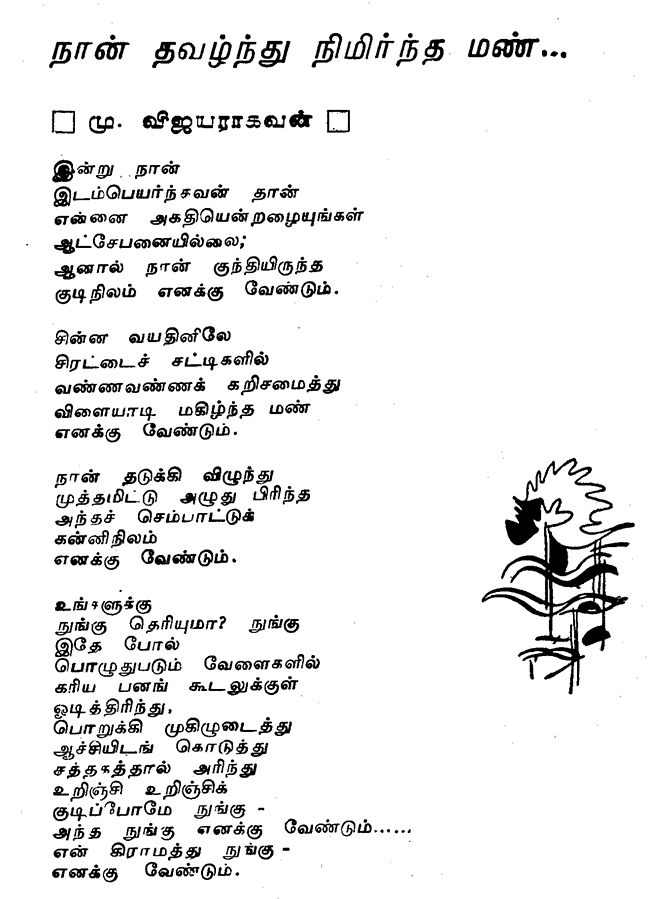 நான் தவழ்ந்து நிமிர்ந்த மண்...
மு. விஜயராகவன்
இன்று நான்
இடம்பெயர்ந்சவன் தான்
என்னை அகதியென்றழையுங்கள்
ஆட்சேபனையில்லை;
ஆனால் நான் குந்தியிருந்த
குடிநிலம் எனக்கு வேண்டும்.
சின்ன வயதினிலே
சிரட்டைச் சட்டிகளில்
வண்ணவண்ணக் கறிசமைத்து
விளையாடி மகிழ்ந்த மண்
எனக்கு வேண்டும்.
நான் தடுக்கி விழுந்து
முத்தமிட்டு அழுது பிரிந்த
அந்தச் செம்பாட்டுக்
கன்னிநிலம்
எனக்கு வேண்டும்.
உங்களுக்கு
நுங்கு தெரியுமா? நுங்கு
இதே போல்
பொழுதுபடும் வேளைகளில்
கரிய பனங் கூடலுக்குள்
ஓடித்திரிந்து,
பொறுக்கி முகிழுடைத்து
ஆச்சியிடங் கொடுத்து
சத்தகத்தால் அரிந்து
உறிஞ்சி உறிஞ்சிக்
குடிப்போமே நுங்கு -
அந்த நுங்கு எனக்கு வேண்டும்......
என் கிராமத்து நுங்கு -
எனக்கு வேண்டும்.